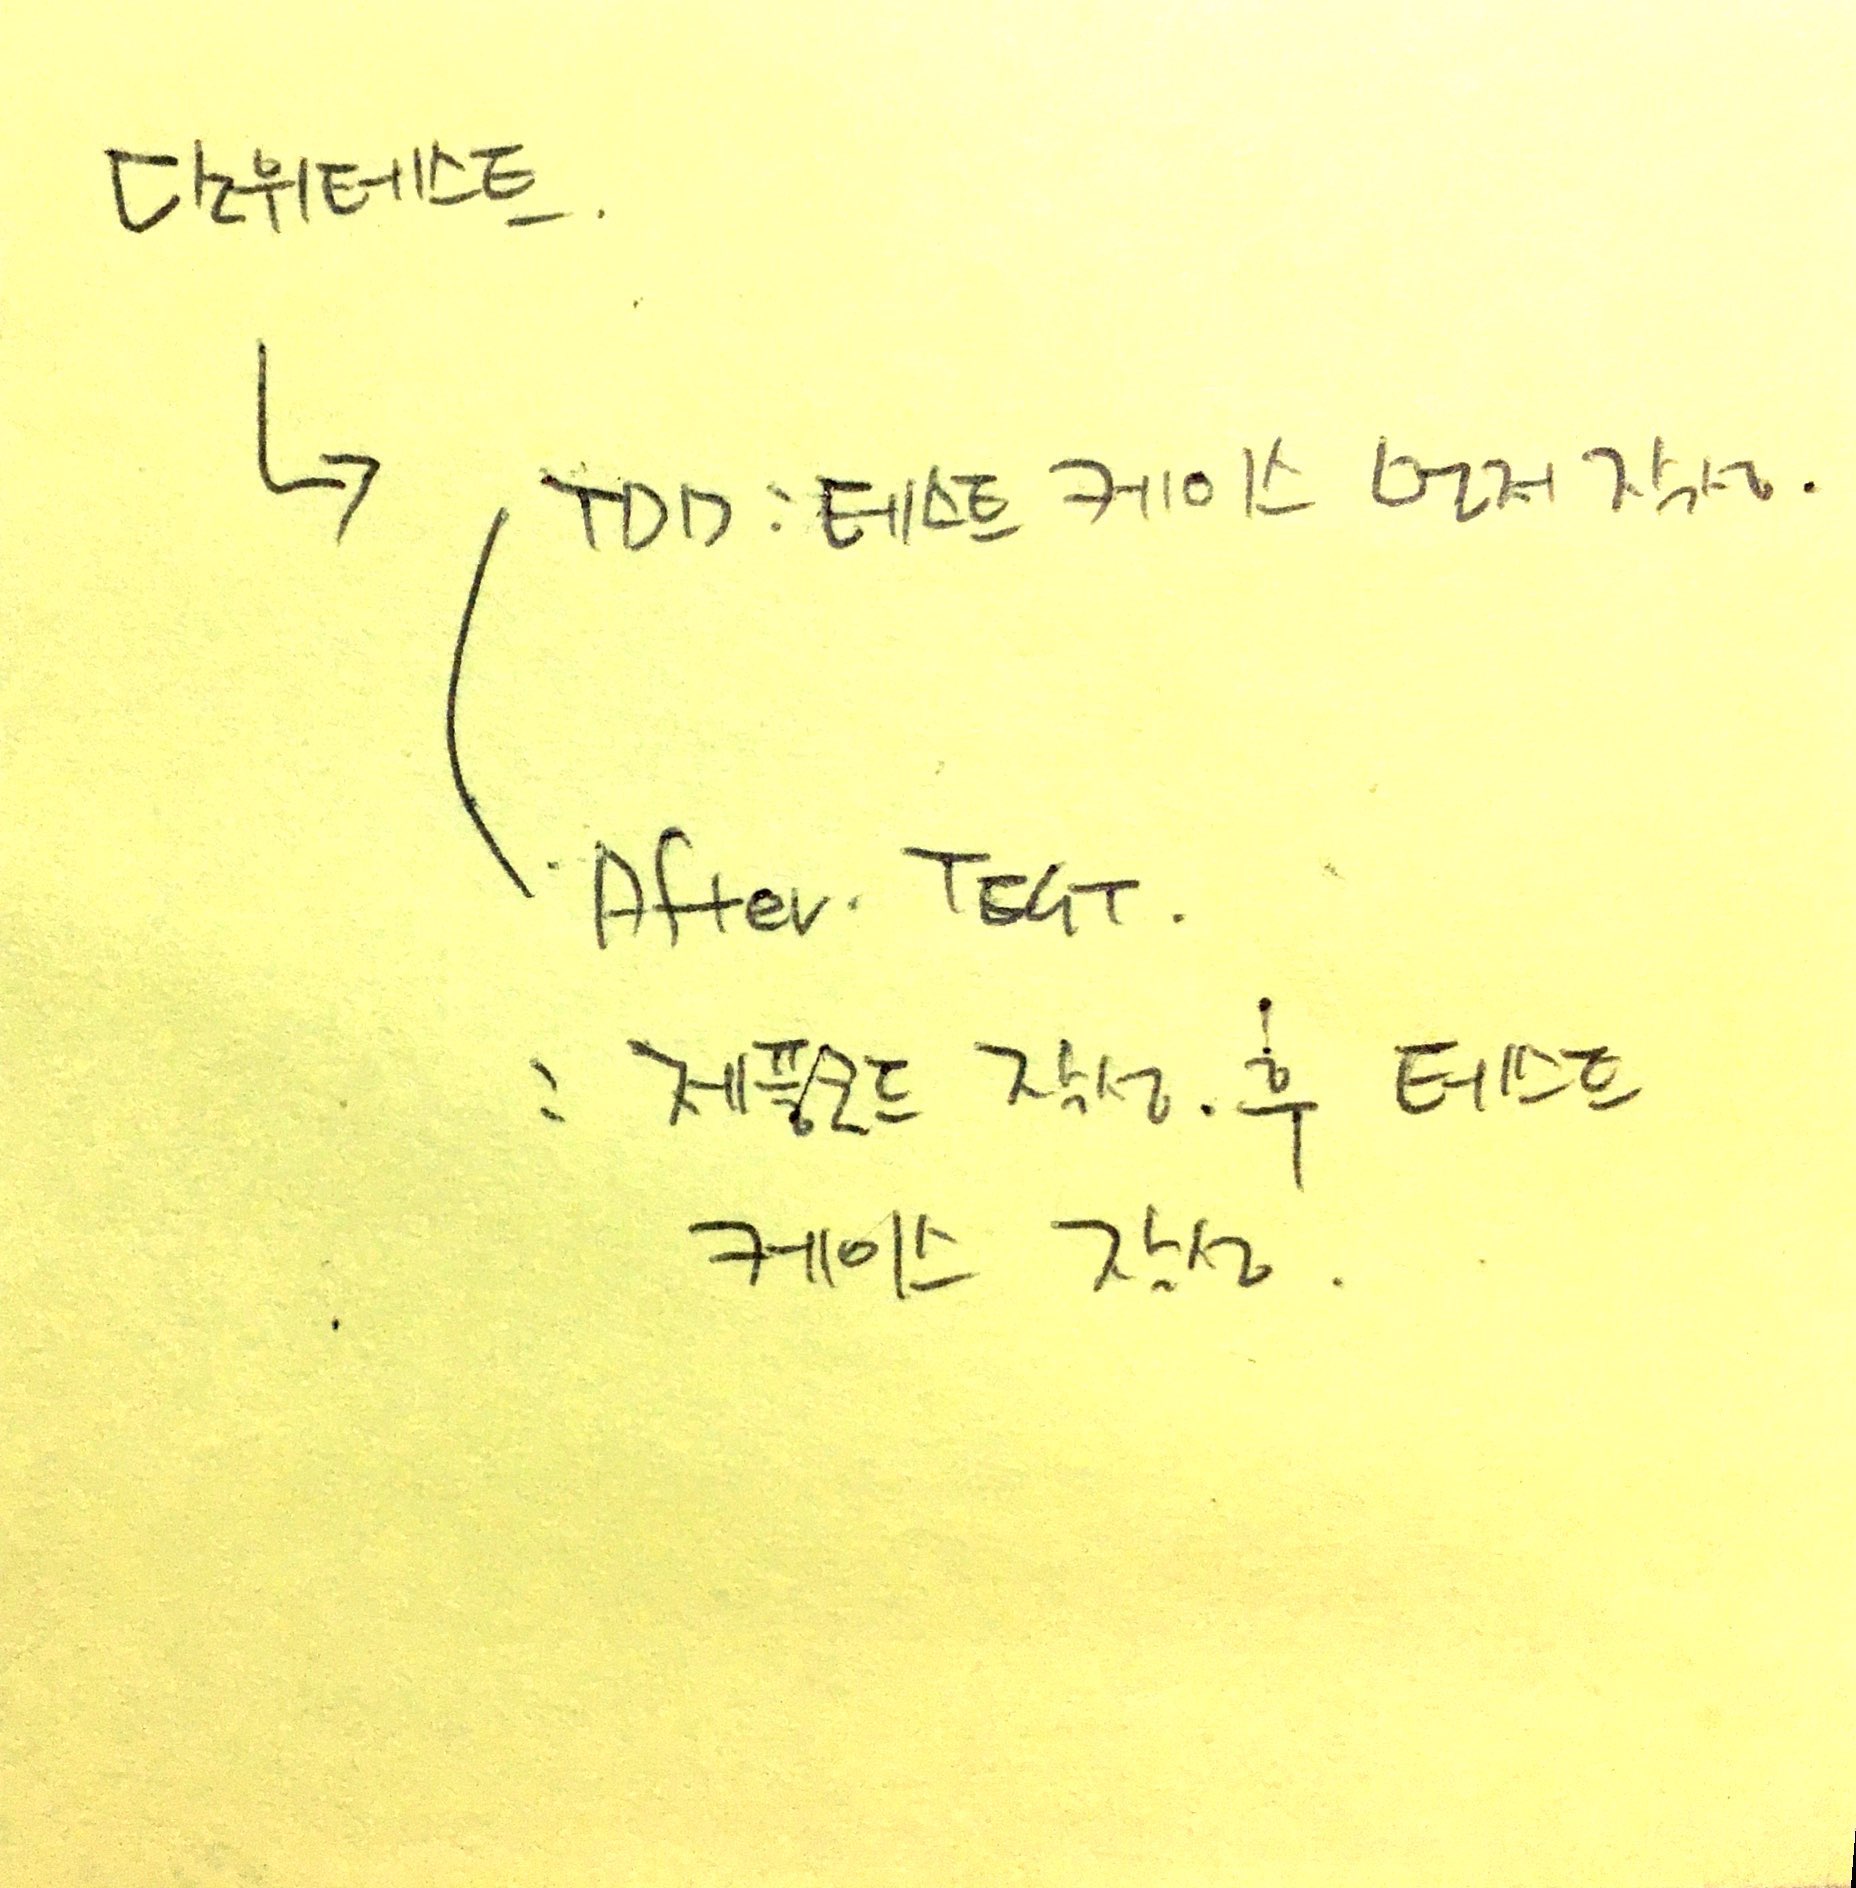 단위테스트.
TDD : 테스트 케이스 먼저 작성.
After. TEST.
: 제품코드 작성. 후 테스트
케이스 작성.